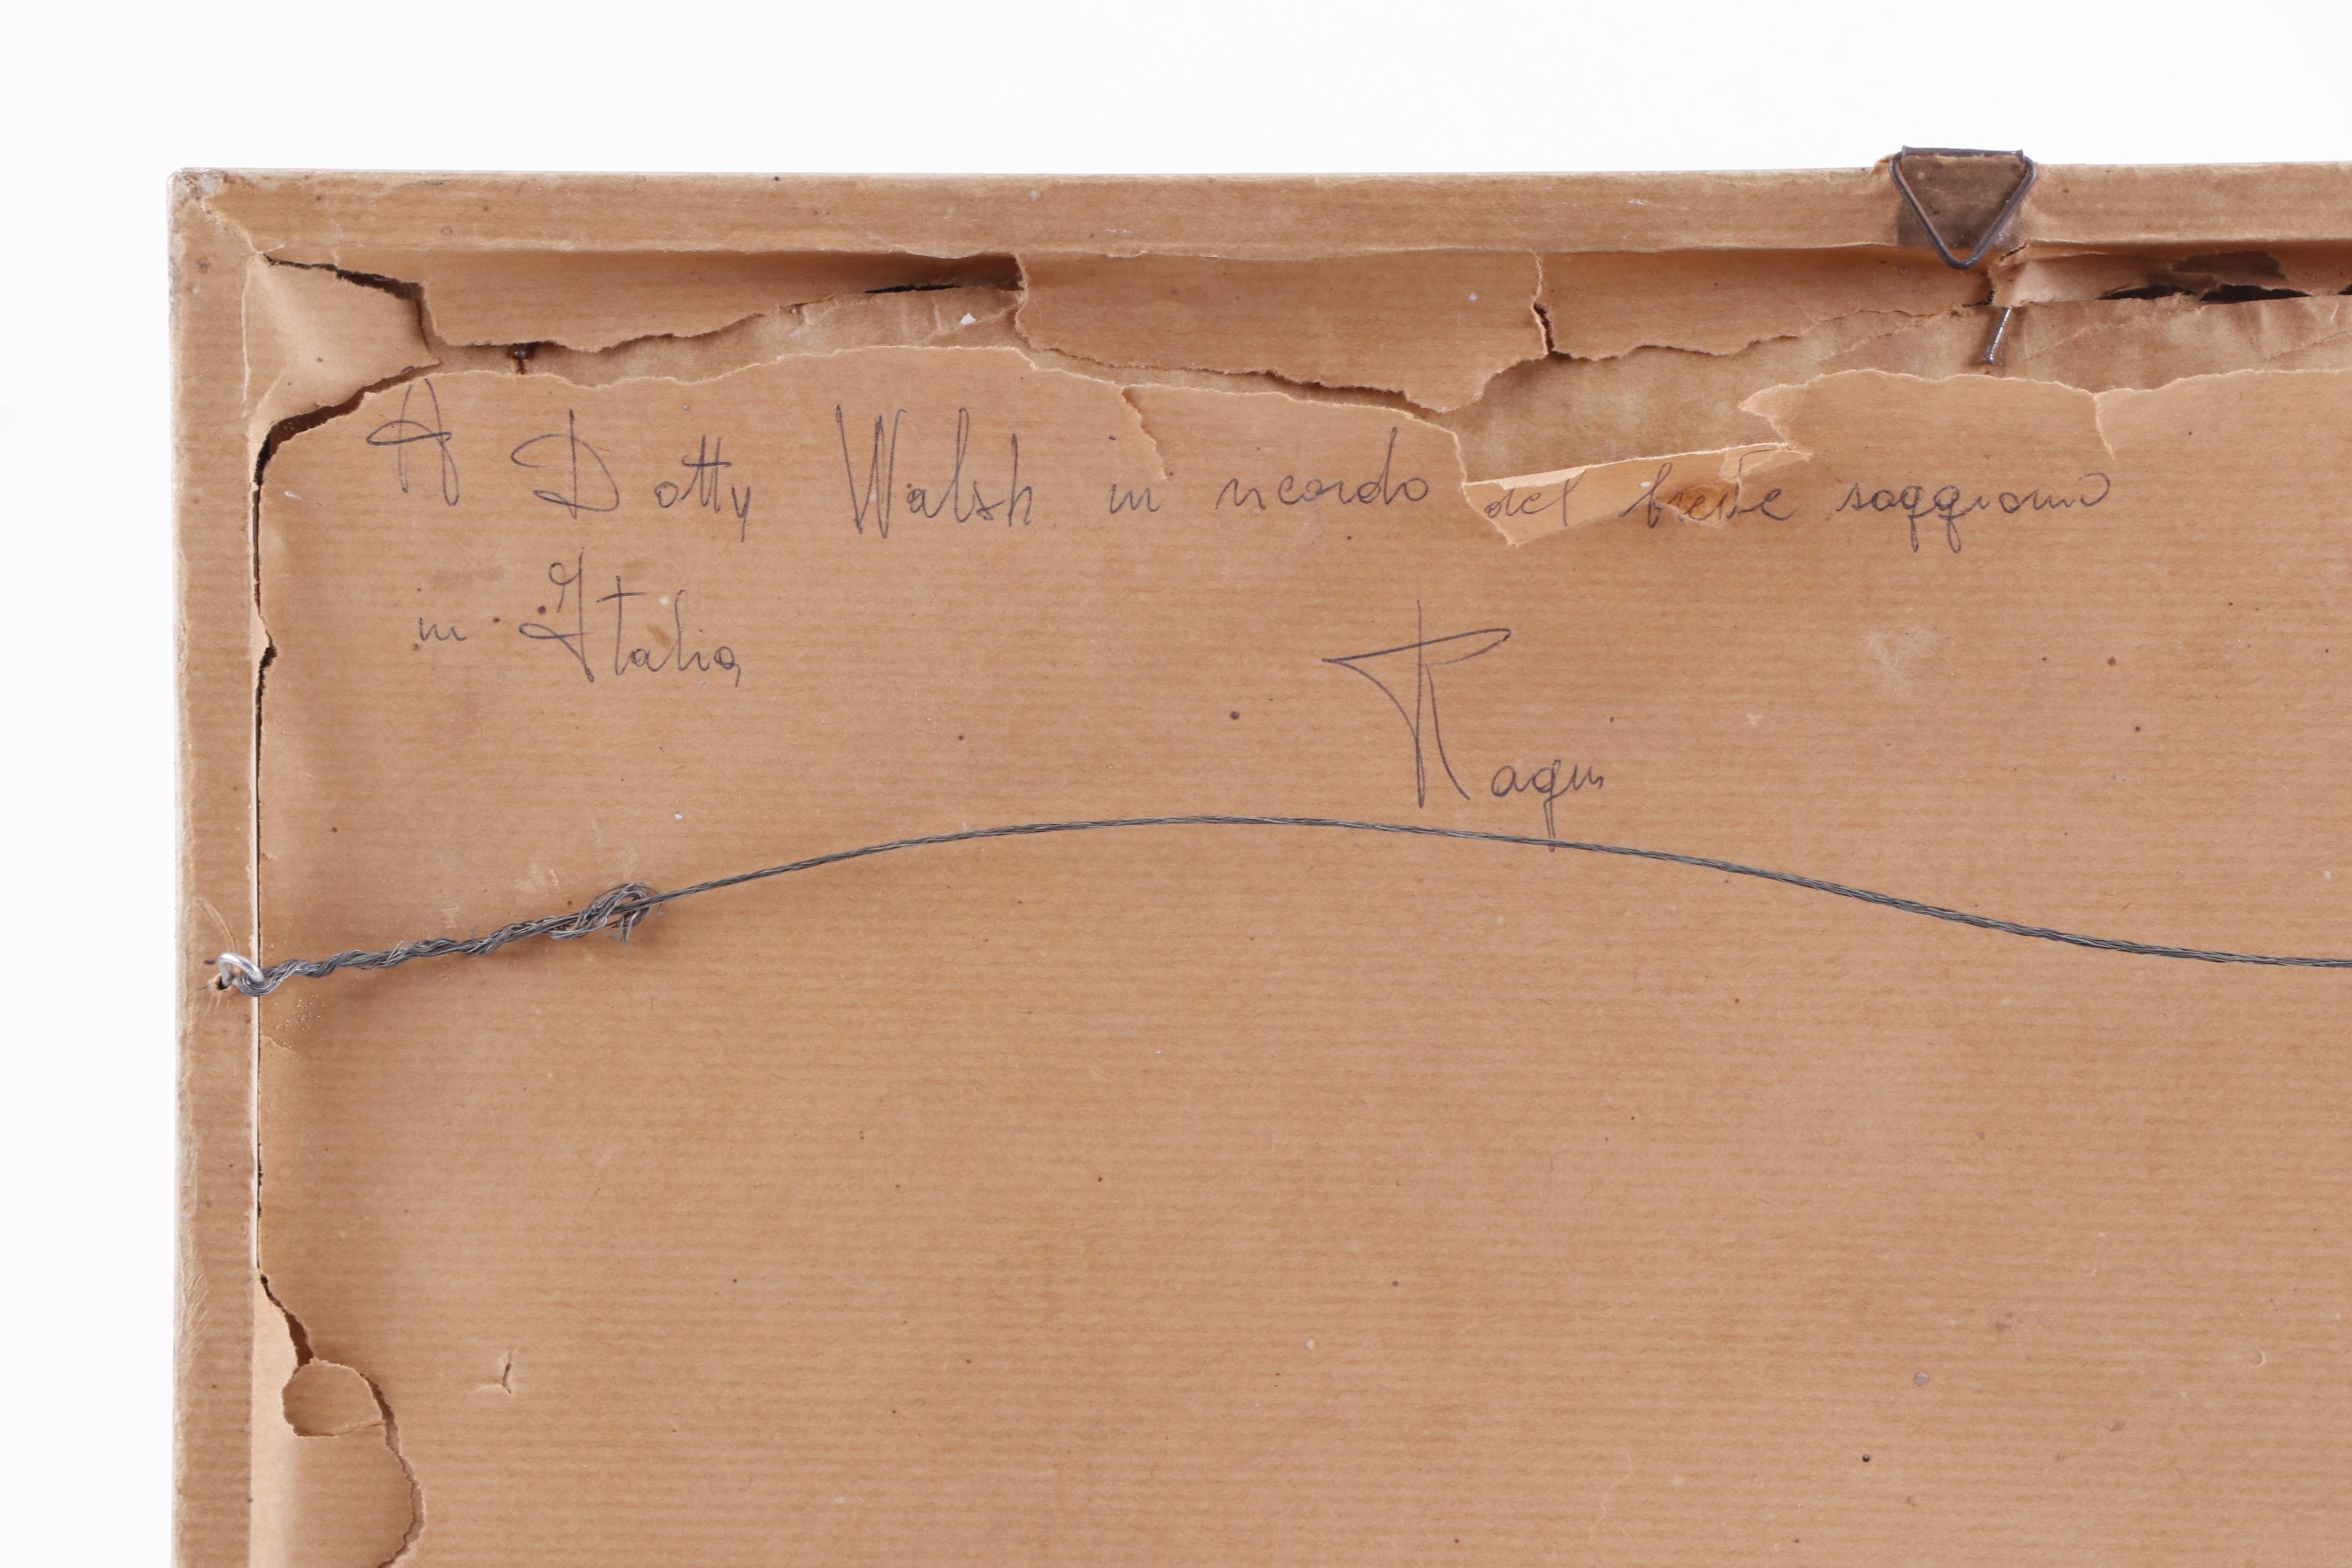 A Dotty Walsh in ricordo del breve soggiorno
in Italia